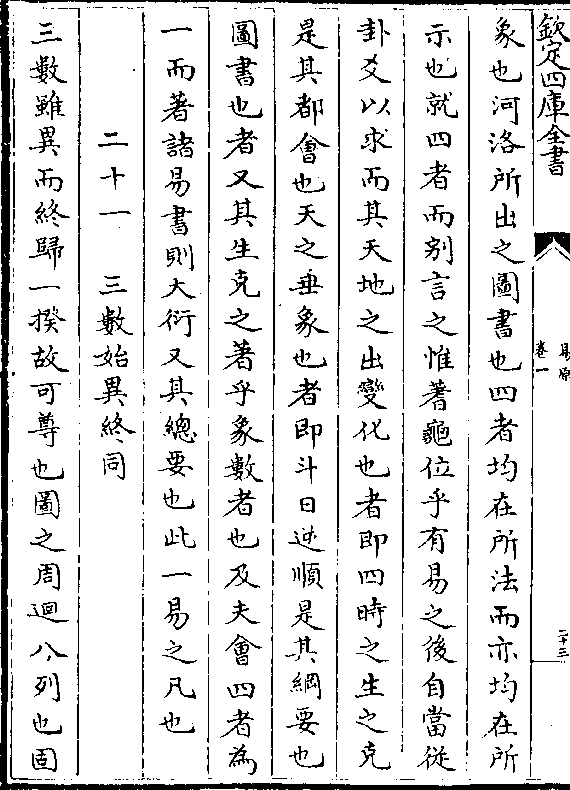 欽定四庫全書
易原
卷一
二十三
象也河洛所出之圖書也四者均在所法而亦均在所
示也就四者而别言之惟蓍龜位乎有易之後自當從
卦爻以求而其天地之出變化也者即四時之生之克
是其都會也天之垂象也者即斗日逆順是其綱要也
圖書也者又其生克之著乎象數者也及夫會四者為
一而著諸易書則大衍又其總要也此一易之凡也
二十一　三數始異終同
三數雖異而終歸一揆故可尊也圖之周迴八列也固